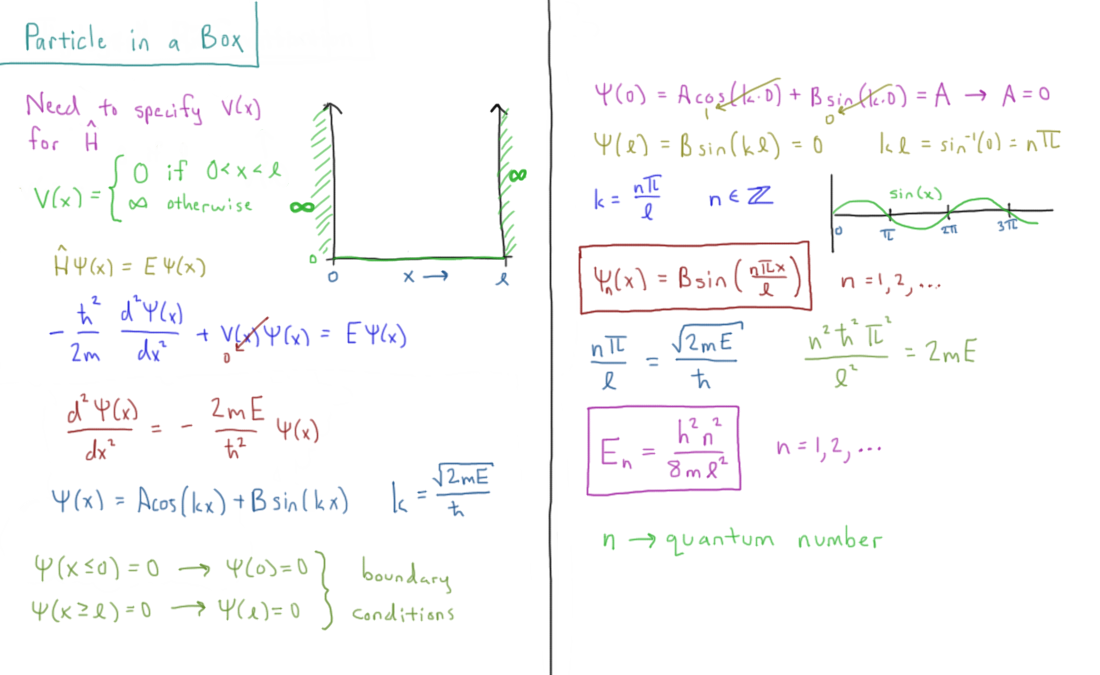 Particle in a Box
Need to specify V(x)
for Ĥ
V(x) = { 0 if 0<x<ℓ
∞ otherwise
∞
∞
0
0 x → ℓ
ĤΨ(x) = EΨ(x)
-ħ²/2m d²Ψ(x)/dx² + V(x)Ψ(x) = EΨ(x)
0
d²Ψ(x)/dx² = - 2mE/ħ² Ψ(x)
Ψ(x) = Acos(kx) + Bsin(kx) k = √2mE/ħ
Ψ(x≤0) = 0 → Ψ(0)=0 } boundary
Ψ(x≥ℓ) = 0 → Ψ(ℓ)=0 conditions
Ψ(0) = Acos(k·0) + Bsin(k·0) = A → A=0
1 0
Ψ(ℓ) = Bsin(kℓ) = 0 kℓ = sin⁻¹(0) = nπ
k = nπ/ℓ n ∈ ℤ
sin(x)
0 π 2π 3π
Ψₙ(x) = Bsin(nπx/ℓ) n = 1, 2, ...
nπ/ℓ = √2mE/ħ n²ħ²π²/ℓ² = 2mE
Eₙ = h²n²/8mℓ² n = 1, 2, ...
n → quantum number